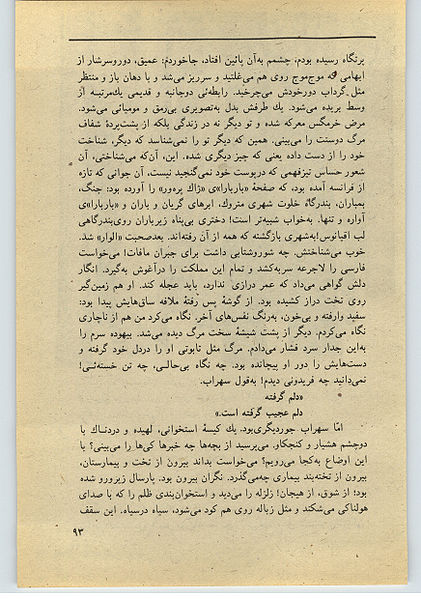 پرتگاه رسیده بودم، چشمم به‌آن پائین افتاد، جاخوردم: عمیق، دوروسرشار از
ابهامی که موج‌موج روی هم می‌غلتید و سرریز می‌شد و با دهان باز و منتظر
مثل گرداب دورخودش می‌چرخید. رابطه‌ئی دوجانبه و قدیمی یك‌مرتبه از
وسط بریده می‌شود. یك طرفش بدل به‌تصویری بی‌رمق و مومیائی می‌شود.
مرض خرمگس معرکه شده و تو دیگر نه در زندگی بلکه از پشت‌پردهٔ شفاف
مرگ دوستت را می‌بینی. همین که دیگر تو را نمی‌شناسد که دیگر، شناخت
خود را از دست داده یعنی که چیز دیگری شده. این، آن‌که می‌شناختی، آن
شعور حساس تیزفهمی که درپوست خود نمی‌گنجید نیست. آن جوانی که تازه
از فرانسه آمده بود، که صفحهٔ «باربارا»ی «ژاك پره‌ور» را آورده بود: جنگ،
بمباران، بندرگاه خلوت شهری متروك، ابرهای گریان و باران و «باربارا»ی
آواره و تنها. به‌خواب شبیه‌تر است! دختری بی‌پناه زیرباران روی‌بندرگاهی
لب اقیانوس! به‌شهری بازگشته که همه از آن رفته‌اند. بعدصحبت «الوار» شد.
خوب می‌شناختش. چه شوروشتابی داشت برای جبران مافات! می‌خواست
فارسی را لاجرعه سربکشد و تمام این مملکت را درآغوش به‌گیرد. انگار
دلش گواهی می‌داد که عمر درازی ندارد، باید عجله کند. او هم زمین‌گیر
روی تخت دراز کشیده بود. از گوشهٔ پس رفتهٔ ملافه ساق‌هایش پیدا بود:
سفید وارفته و بی‌خون، به‌رنگ نفس‌های آخر. نگاه می‌کرد من هم از ناچاری
نگاه می‌کردم. دیگر از پشت شیشهٔ سخت مرگ دیده می‌شد. بیهوده سرم را
به‌این جدار سرد فشار می‌دادم. مرگ مثل تابوتی او را دردل خود گرفته و
دست‌هایش را دور او پیچانده بود. چه نگاه بی‌حالی، چه تن خسته‌ئی!
نمی‌دانید چه فریدونی دیدم! به‌قول سهراب.
«دلم گرفته
دلم عجیب گرفته است.»
امّا سهراب جوردیگری‌بود. یك کیسهٔ استخوانی، لهیده و دردناك با
دوچشم هشیار و کنجکاو. می‌پرسید از بچه‌ها چه خبرها کی‌ها را می‌بینی؟ با
این اوضاع به‌کجا می‌رویم؟ می‌خواست بداند بیرون از تخت و بیمارستان،
بیرون از تخته‌بند بیماری چه‌می‌گذرد. نگران بیرون بود. پارسال زیرورو شده
بود؛ از شوق، از هیجان! زلزله را می‌دید و استخوان‌بندی ظلم را که با صدای
هولناکی می‌شکند و مثل زباله روی هم کود می‌شود، سیاه درسیاه. این سقف
۹۳